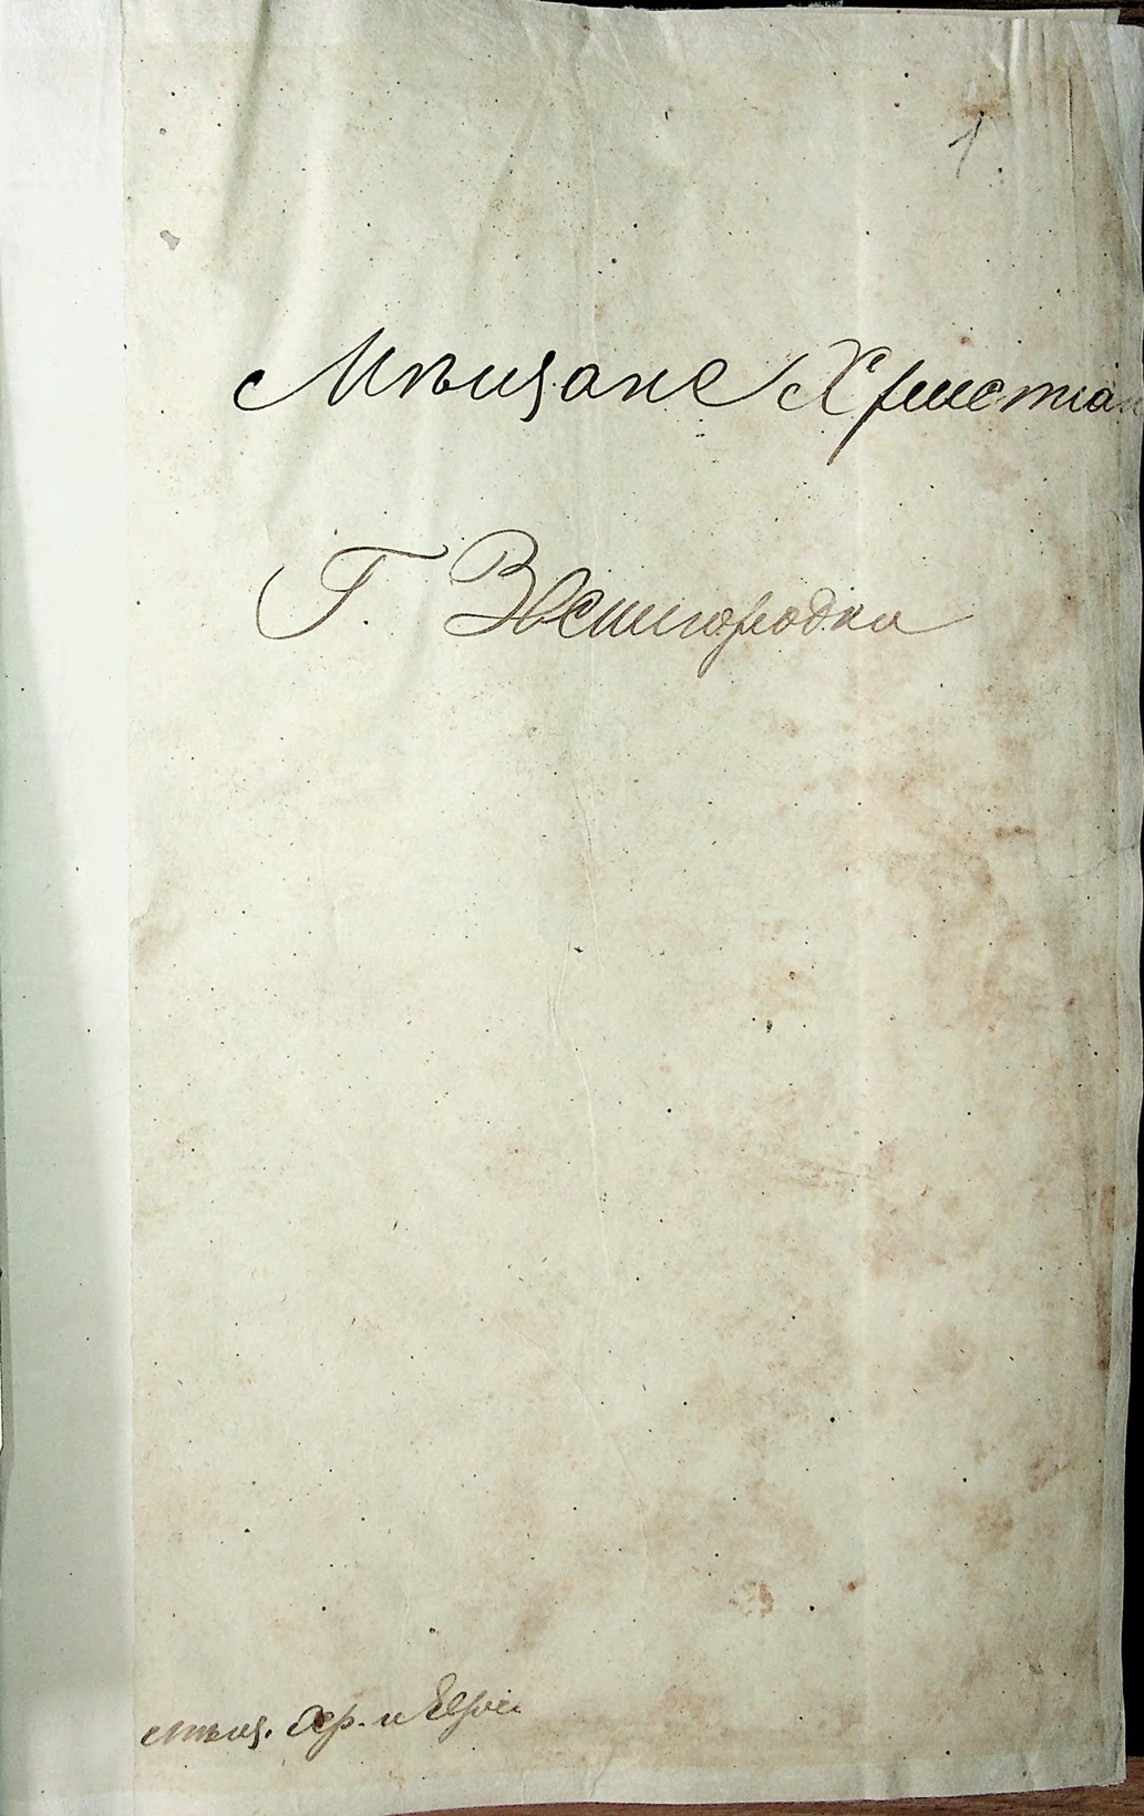 1
Мѣщане Христіан
Г. Звенигородки
Мѣщ. Хр. и Евреи